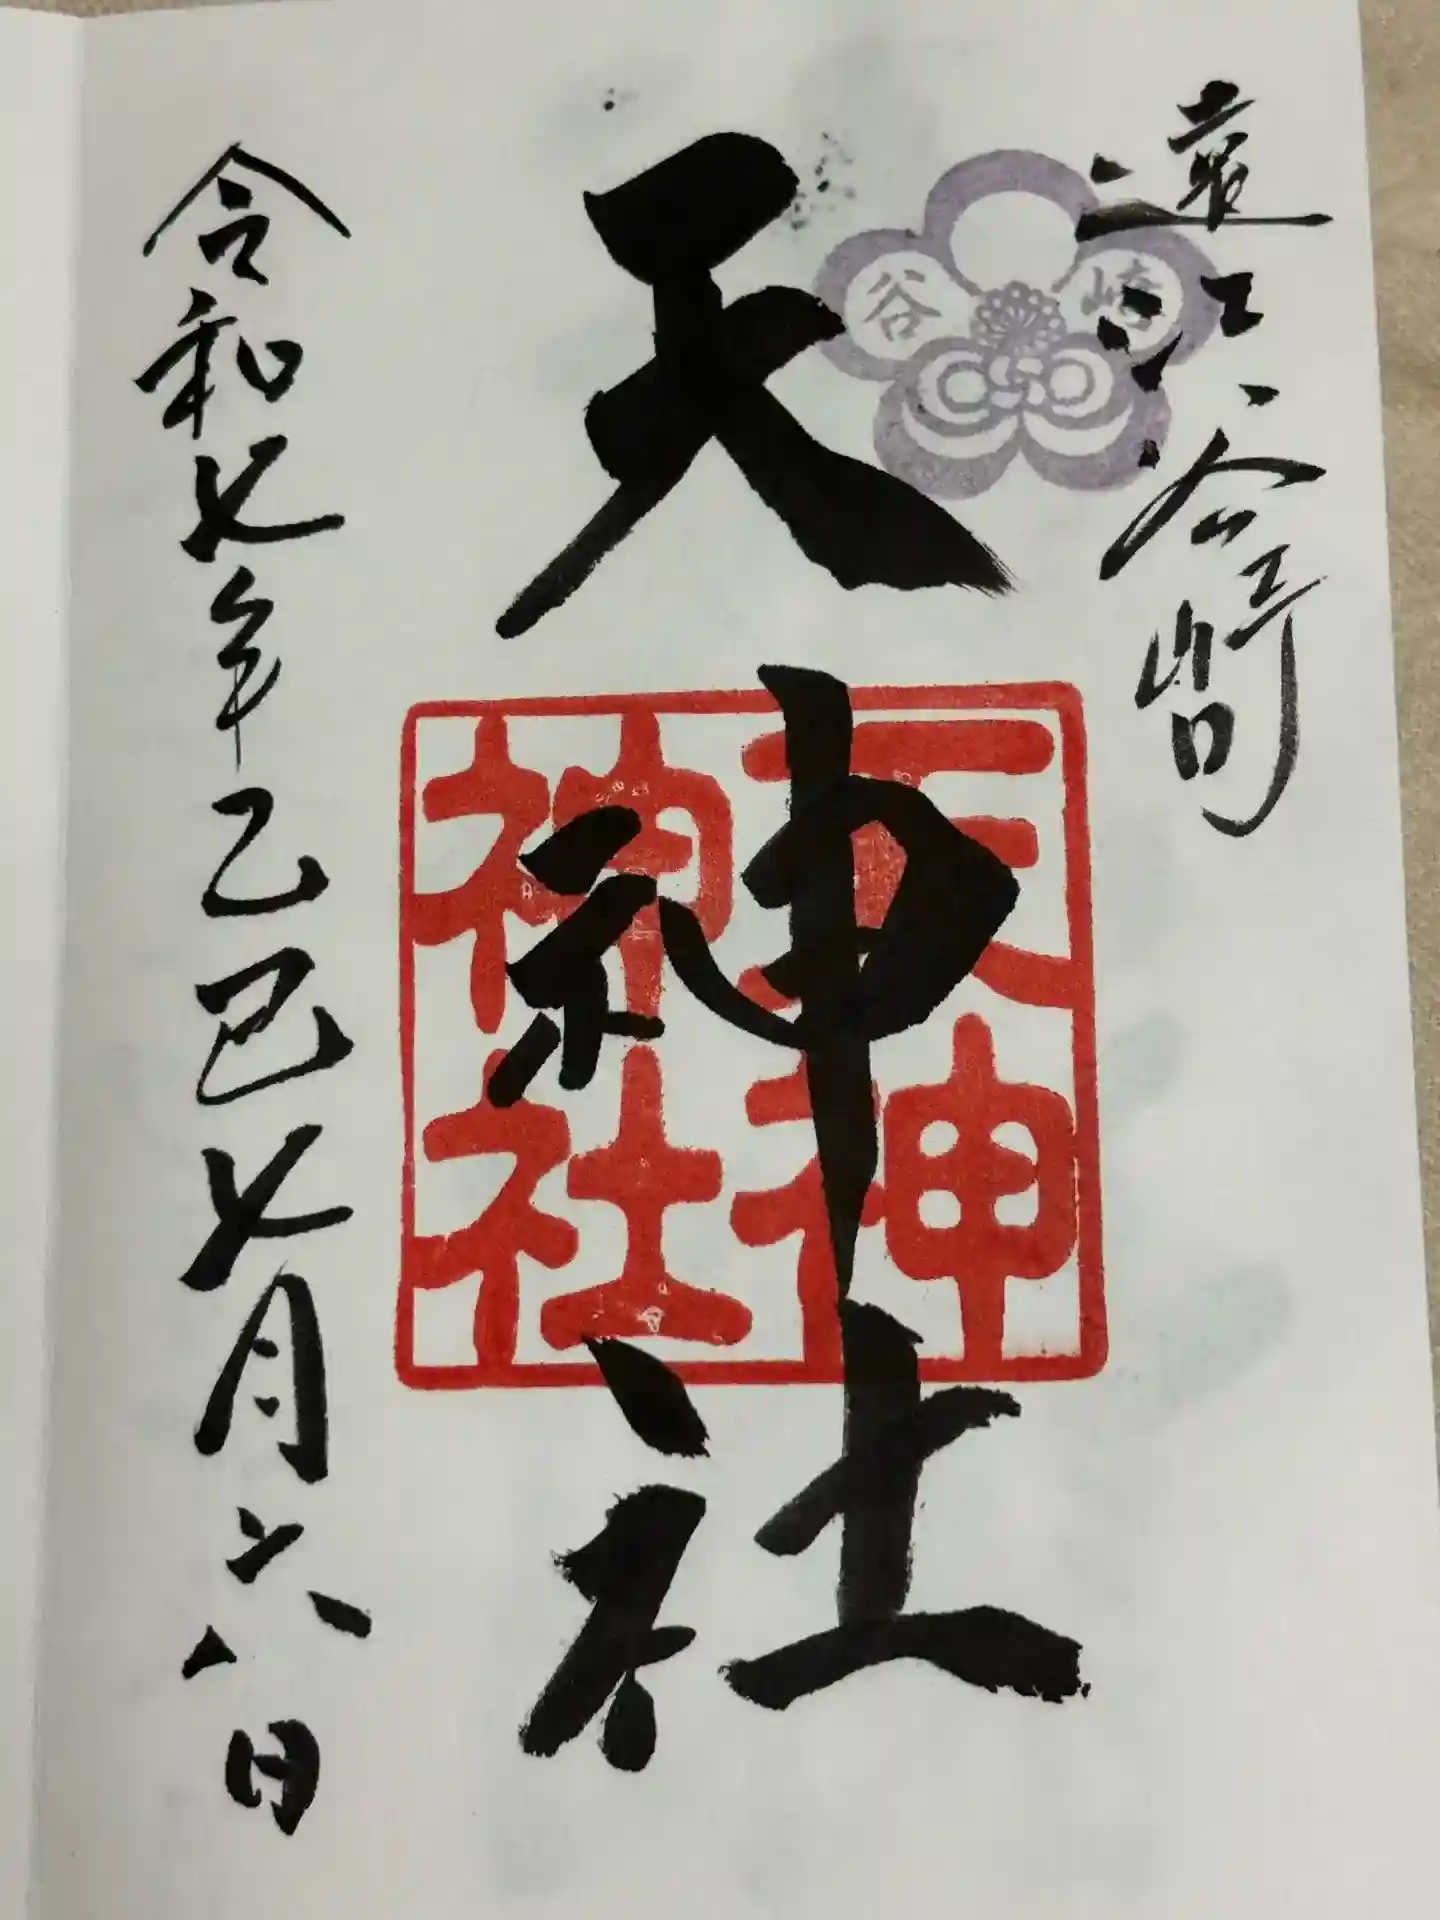 遠江谷﨑
天神社
令和七年乙巳七月六日
崎
谷
天神
神社